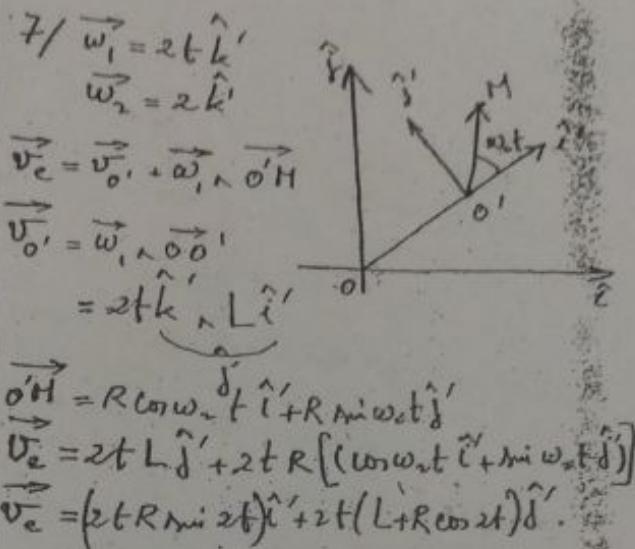 7/ \vec{ω_1} = 2t \hat{k}'
\vec{ω_2} = 2 \hat{k}'
\vec{v_e} = \vec{v_{o'}} + \vec{ω_1} ∧ \vec{O'M}
\vec{v_{o'}} = \vec{ω_1} ∧ \vec{OO'}
= 2t \hat{k}' ∧ L \hat{i}'
\hat{j}'
\vec{O'M} = R cos ω_2 t \hat{i}' + R sin ω_2 t \hat{j}'
\vec{v_e} = 2t L \hat{j}' + 2t R [(cos ω_2 t \hat{i}' + sin ω_2 t \hat{j}')]
\vec{v_e} = (2t R sin 2t) \hat{i}' + 2t (L + R cos 2t) \hat{j}'.
\hat{j}
\hat{j}'
M
ω_2 t
\hat{i}'
O'
O
\hat{i}